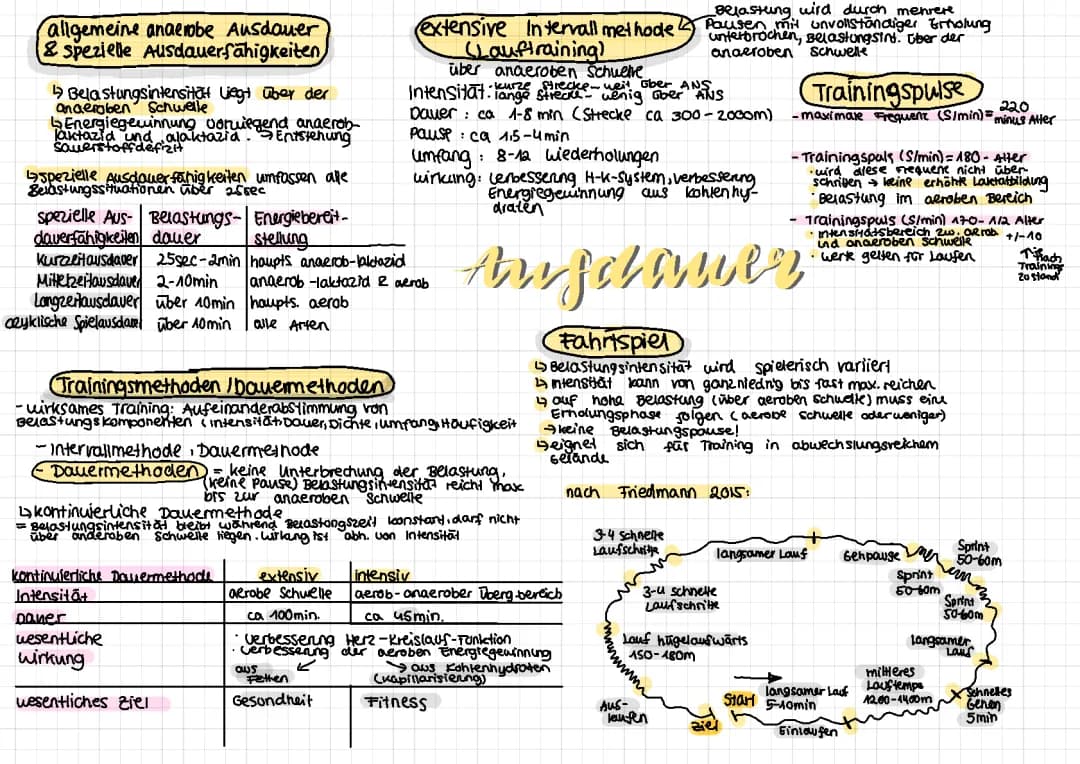 allgemeine anaerobe Ausdauer
& spezielle Ausdauerfähigkeiten
↳ Belastungsintensität liegt über der
anaeroben Schwelle
↳ Energiegewinnung vorwiegend anaerob-
laktazid und alaktazid. → Entstehung
Sauerstoffdefizit
↳ spezielle Ausdauerfähigkeiten umfassen alle
Belastungssituationen über 25sec
spezielle Aus- | Belastungs- | Energiebereit-
dauerfähigkeiten | dauer | stellung
Kurzzeitausdauer | 25sec-2min | haupts. anaerob-laktazid
Mittelzeitausdauer | 2-10min | anaerob-laktazid & aerob
Langzeitausdauer | über 10min | haupts. aerob
azyklische Spielausdauer | über 10min | alle Arten
extensive Intervallmethode
(Lauftraining)
Belastung wird durch mehrere
Pausen mit unvollständiger Erholung
unterbrochen, Belastungsint. über der
anaeroben Schwelle
über anaeroben Schwelle
Intensität: kurze Strecke- weit über ANS
lange Strecke- wenig über ANS
Dauer: ca 1-8 min (Strecke ca 300-2000m)
Pause: ca 1,5-4min
Umfang: 8-12 Wiederholungen
Wirkung: Verbesserung H-K-System, Verbesserung
Energiegewinnung aus Kohlenhy-
draten
Trainingspulse
- maximale Frequenz (S/min) = 220
minus Alter
- Trainingspuls (S/min) = 180 - Alter
· wird diese Frequenz nicht über-
schritten → keine erhöhte Laktatbildung
· Belastung im aeroben Bereich
- Trainingspuls (S/min) 170-1/2 Alter
· Intensitätsbereich zw. aerob
und anaeroben Schwelle
+/-10
· Werte gelten für Laufen
↑ je nach
Trainings
zustand
Ausdauer
Trainingsmethoden / Dauermethoden
- wirksames Training: Aufeinanderabstimmung von
Belastungskomponenten (Intensität, Dauer, Dichte, Umfang, Häufigkeit
- Intervallmethode, Dauermethode
- Dauermethoden = keine Unterbrechung der Belastung,
(keine Pause) Belastungsintensität reicht max
bis zur anaeroben Schwelle
↳ kontinuierliche Dauermethode
= Belastungsintensität bleibt während Belastungszeit konstant, darf nicht
über anaeroben Schwelle liegen. Wirkung ist abh. von Intensität
kontinuierliche Dauermethode | extensiv | intensiv
Intensität | aerobe Schwelle | aerob-anaerober Übergbereich
Dauer | ca 100min. | ca 45min.
wesentliche
Wirkung
· Verbesserung Herz-Kreislauf-Funktion
· Verbesserung der aeroben Energiegewinnung
aus
Fetten
→ aus Kohlenhydraten
(Kapillarisierung)
wesentliches Ziel | Gesundheit | Fitness
Fahrtspiel
↳ Belastungsintensität wird spielerisch variiert
↳ Intensität kann von ganz niedrig bis fast max. reichen
↳ auf hohe Belastung (über aeroben Schwelle) muss eine
Erholungsphase folgen (aerobe Schwelle oder weniger)
→ keine Belastungspause!
↳ eignet sich für Training in abwechslungsreichem
Gelände
nach Friedmann 2015:
3-4 schnelle
Laufschritte
langsamer Lauf
Gehpause
Sprint
50-60m
Sprint
50-60m
Sprint
50-60m
3-4 schnelle
Laufschritte
Lauf hügelaufwärts
150-180m
langsamer
Lauf
mittleres
Lauftempo
1200-1400m
schnelles
Gehen
5min
Start
langsamer Lauf
5-10min
Aus-
laufen
Ziel
Einlaufen